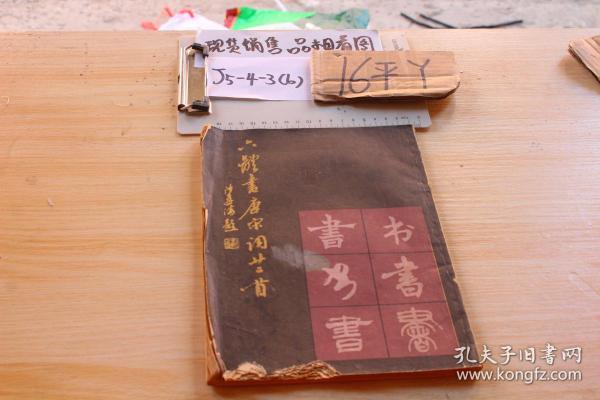 现货销售 品相看图
J5-4-3(6)
16平丫
六體書唐宋词廿首
沙孟海题
書 书
书 書
書 書
孔夫子旧书网
www.kongfz.com